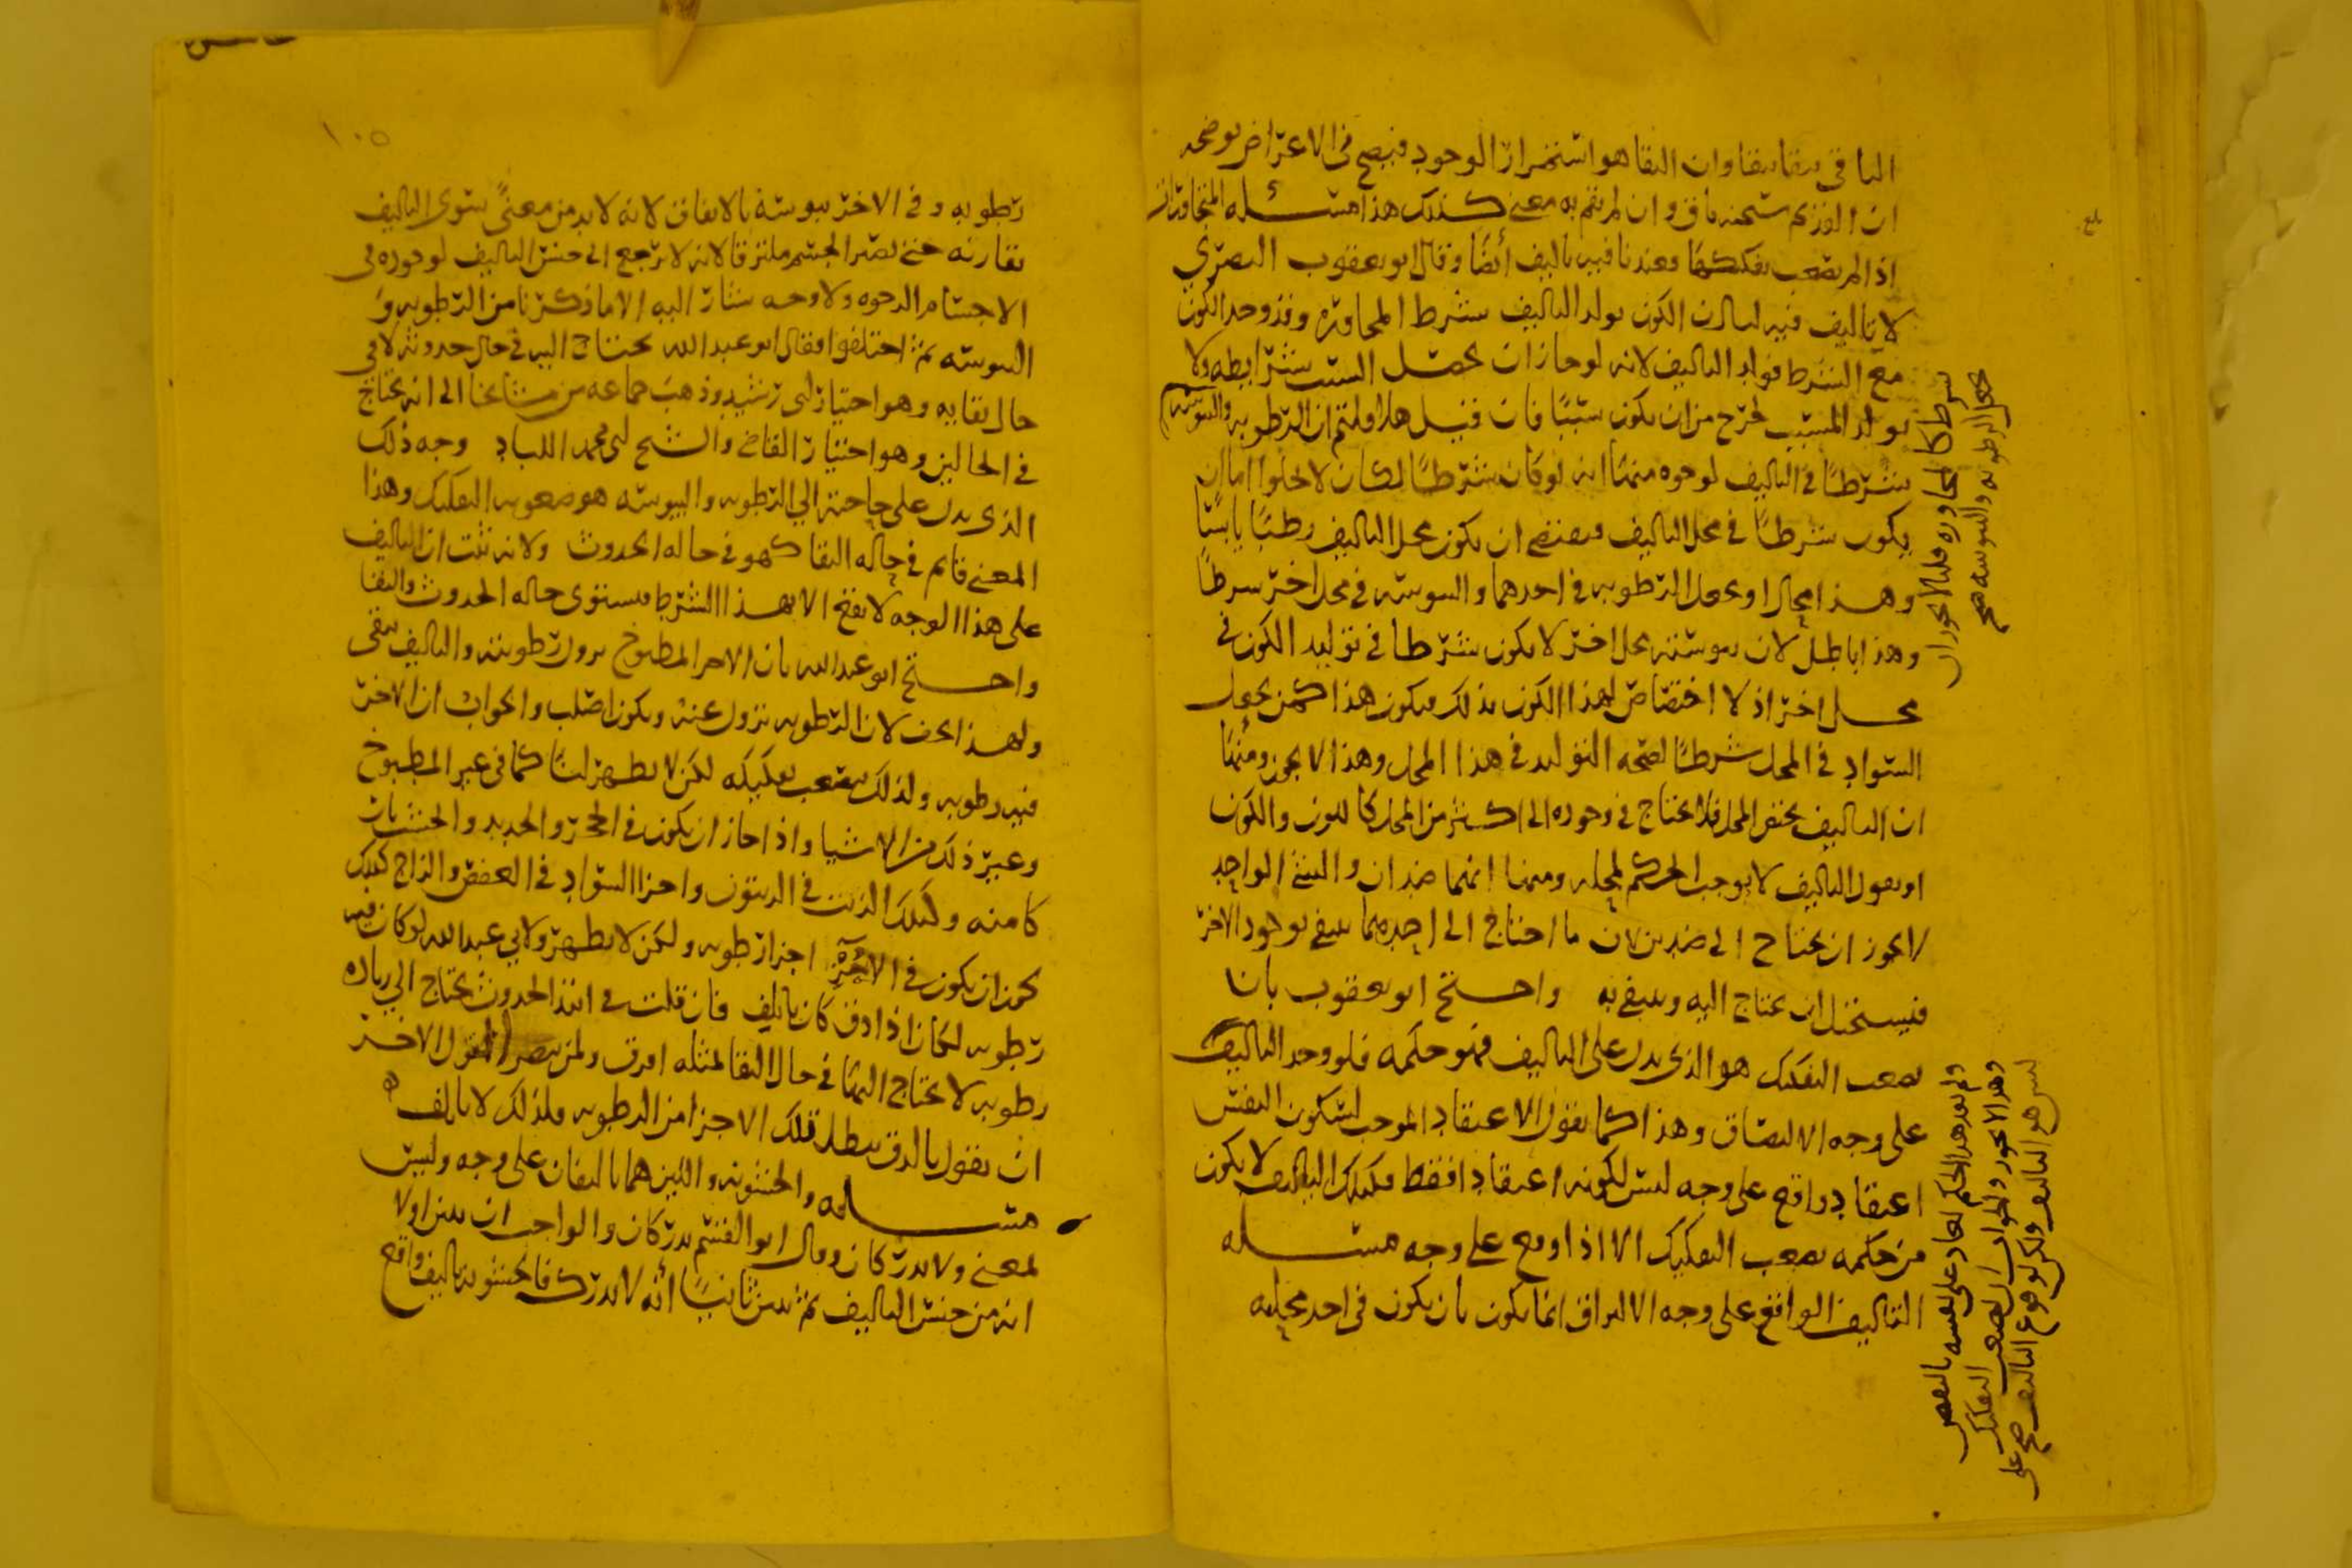 الباقي ببقا يبقا وان البقا هو استمرار الوجود فيصح في الاعراض يوضحه
ان القديم سبحنه باق وان لم يقم به معنى كذلك هذا مسئله المتجاوران
اذا لم يصعب تفكيكهما وعندنا فيه تاليف أيضًا وقال ابو يعقوب البصري
لا تاليف فيه لنا ان الكون يولد التاليف بشرط المجاوره وقد وجد الكون
مع الشرط فولد التاليف لانه لو جاز ان يحصل السبب بشرايطه ولا
يولد المسبب لخرج من ان يكون سببًا فان قيل هلا قلتم ان الرطوبه واليبوسه
شرطًا في التاليف لوجوه منها انه لو كان شرطًا لكان لا يخلوا اما ان
يكون شرطًا في محل التاليف فيقتضي ان يكون محل التاليف رطبًا يابسًا
وهذا محال او يجعل الرطوبه في احدهما واليبوسه في محل اخر شرطا
وهذا باطل لان يبوسته بمحل اخر لا يكون شرطا في توليد الكون في
محل اخر اذ لا اختصاص لهذا الكون بذلك فيكون هذا كمن يجعل
السواد في المحل شرطًا لصحه التوليد في هذا المحل وهذا لا يجوز ومنها
ان التاليف يحتفر المحل فلا يحتاج في وجوده الى اكثر من المحل كاللون والكون
او يقول التاليف لا يوجب الحكم لمحله ومنها انهما ضدان والشي الواحد
لا يجوز ان يحتاج الى ضدين لان ما احتاج الى احدهما ينتفي بوجود الاخر
فيستحيل ان يحتاج اليه وينتفي به واحتج ابو يعقوب بان
تصعب التفكيك هو الذي يدل على التاليف فهو حكمه فلو وجد التاليف
على وجه الالتصاق وهذا كما يقول الاعتقاد الموجب لسكون النفس
اعتقاد واقع على وجه ليس لكونه اعتقادا فقط فكذلك التاليف لا يكون
من حكمه تصعب التفكيك الا اذا وقع على وجه مسئله
التاليف الواقع على وجه الالتزاق انما يكون بان يكون في احد محليه
شرط كالمجاوره قلنا لا يجوز ان
يجعل الرطوبه واليبوسه صح
ولم يوجد هذا الحكم لعاد على نفسه بالنقض
وهذا لا يجوز والجواب ان تصعب التفكيك
ليس هو التاليف ولكن لوقوع التاليف صح على
بلغ
١٠٥
رطوبه وفي الاخر يبوسة بالاتفاق لانه لا بد من معنًى سوى التاليف
تقارنه حتى يصير الجسم ملتزقا لانه لا يرجع الى جنس التاليف لوجوده في
الاجسام الرخوه ولا وجه يشار اليه الا ما ذكرنا من الرطوبه و
اليبوسه ثم اختلفوا فقال ابو عبد الله يحتاج اليه في حال حدوثه لا في
حال بقايه وهو اختيار ابي رشيد وذهب جماعه من مشايخنا الى انه يحتاج
في الحالين وهو اختيار القاضي والشيخ ابي محمد اللباد وجه ذلك
الذي يدل على حاجته الى الرطوبه واليبوسه هو صعوبه التفكيك وهذا
المعنى قايم في حاله البقا كهو في حاله الحدوث ولانه ثبت ان التاليف
على هذا الوجه لا يقع الا بهذا الشرط فيستوي حاله الحدوث والبقا
واحتج ابو عبد الله بان الاجر المطبوخ يزول رطوبته والتاليف يبقى
ولهذا يجف لان الرطوبه تزول عنه ويكون اصلب والجواب ان الاجر
فيه رطوبه ولذلك يصعب تفكيكه لكن لا يظهر لنا كما في غير المطبوخ
وغير ذلك من الاشيا واذا جاز ان يكون في الحجر والحديد والخشب نار
كامنه وكذلك الزيت في الزيتون واجزا السواد في العفص والزاج كذلك
يمكن ان يكون في الاجر اجزا رطوبه ولكن لا يظهر ولابي عبد الله لو كان فيه
رطوبه لكان اذا دق كان ياتلف فان قلت في ابتدا الحدوث يحتاج الى زياده
رطوبه لا يحتاج اليها في حال البقا لمثله افرق ولمن ينصر القول الاخر
ان يقول بالدق يبطل تلك الاجزا من الرطوبه فلذلك لا ياتلف ه
مسئله والخشونه واللين هما تاليفان على وجه وليس
لمعنى ولا يدركان وقال ابو القسم يدركان والواجب ان نبين اولا
انه من جنس التاليف ثم نبين ثانيًا أنه لا يدرك فالخشونه تاليف واقع